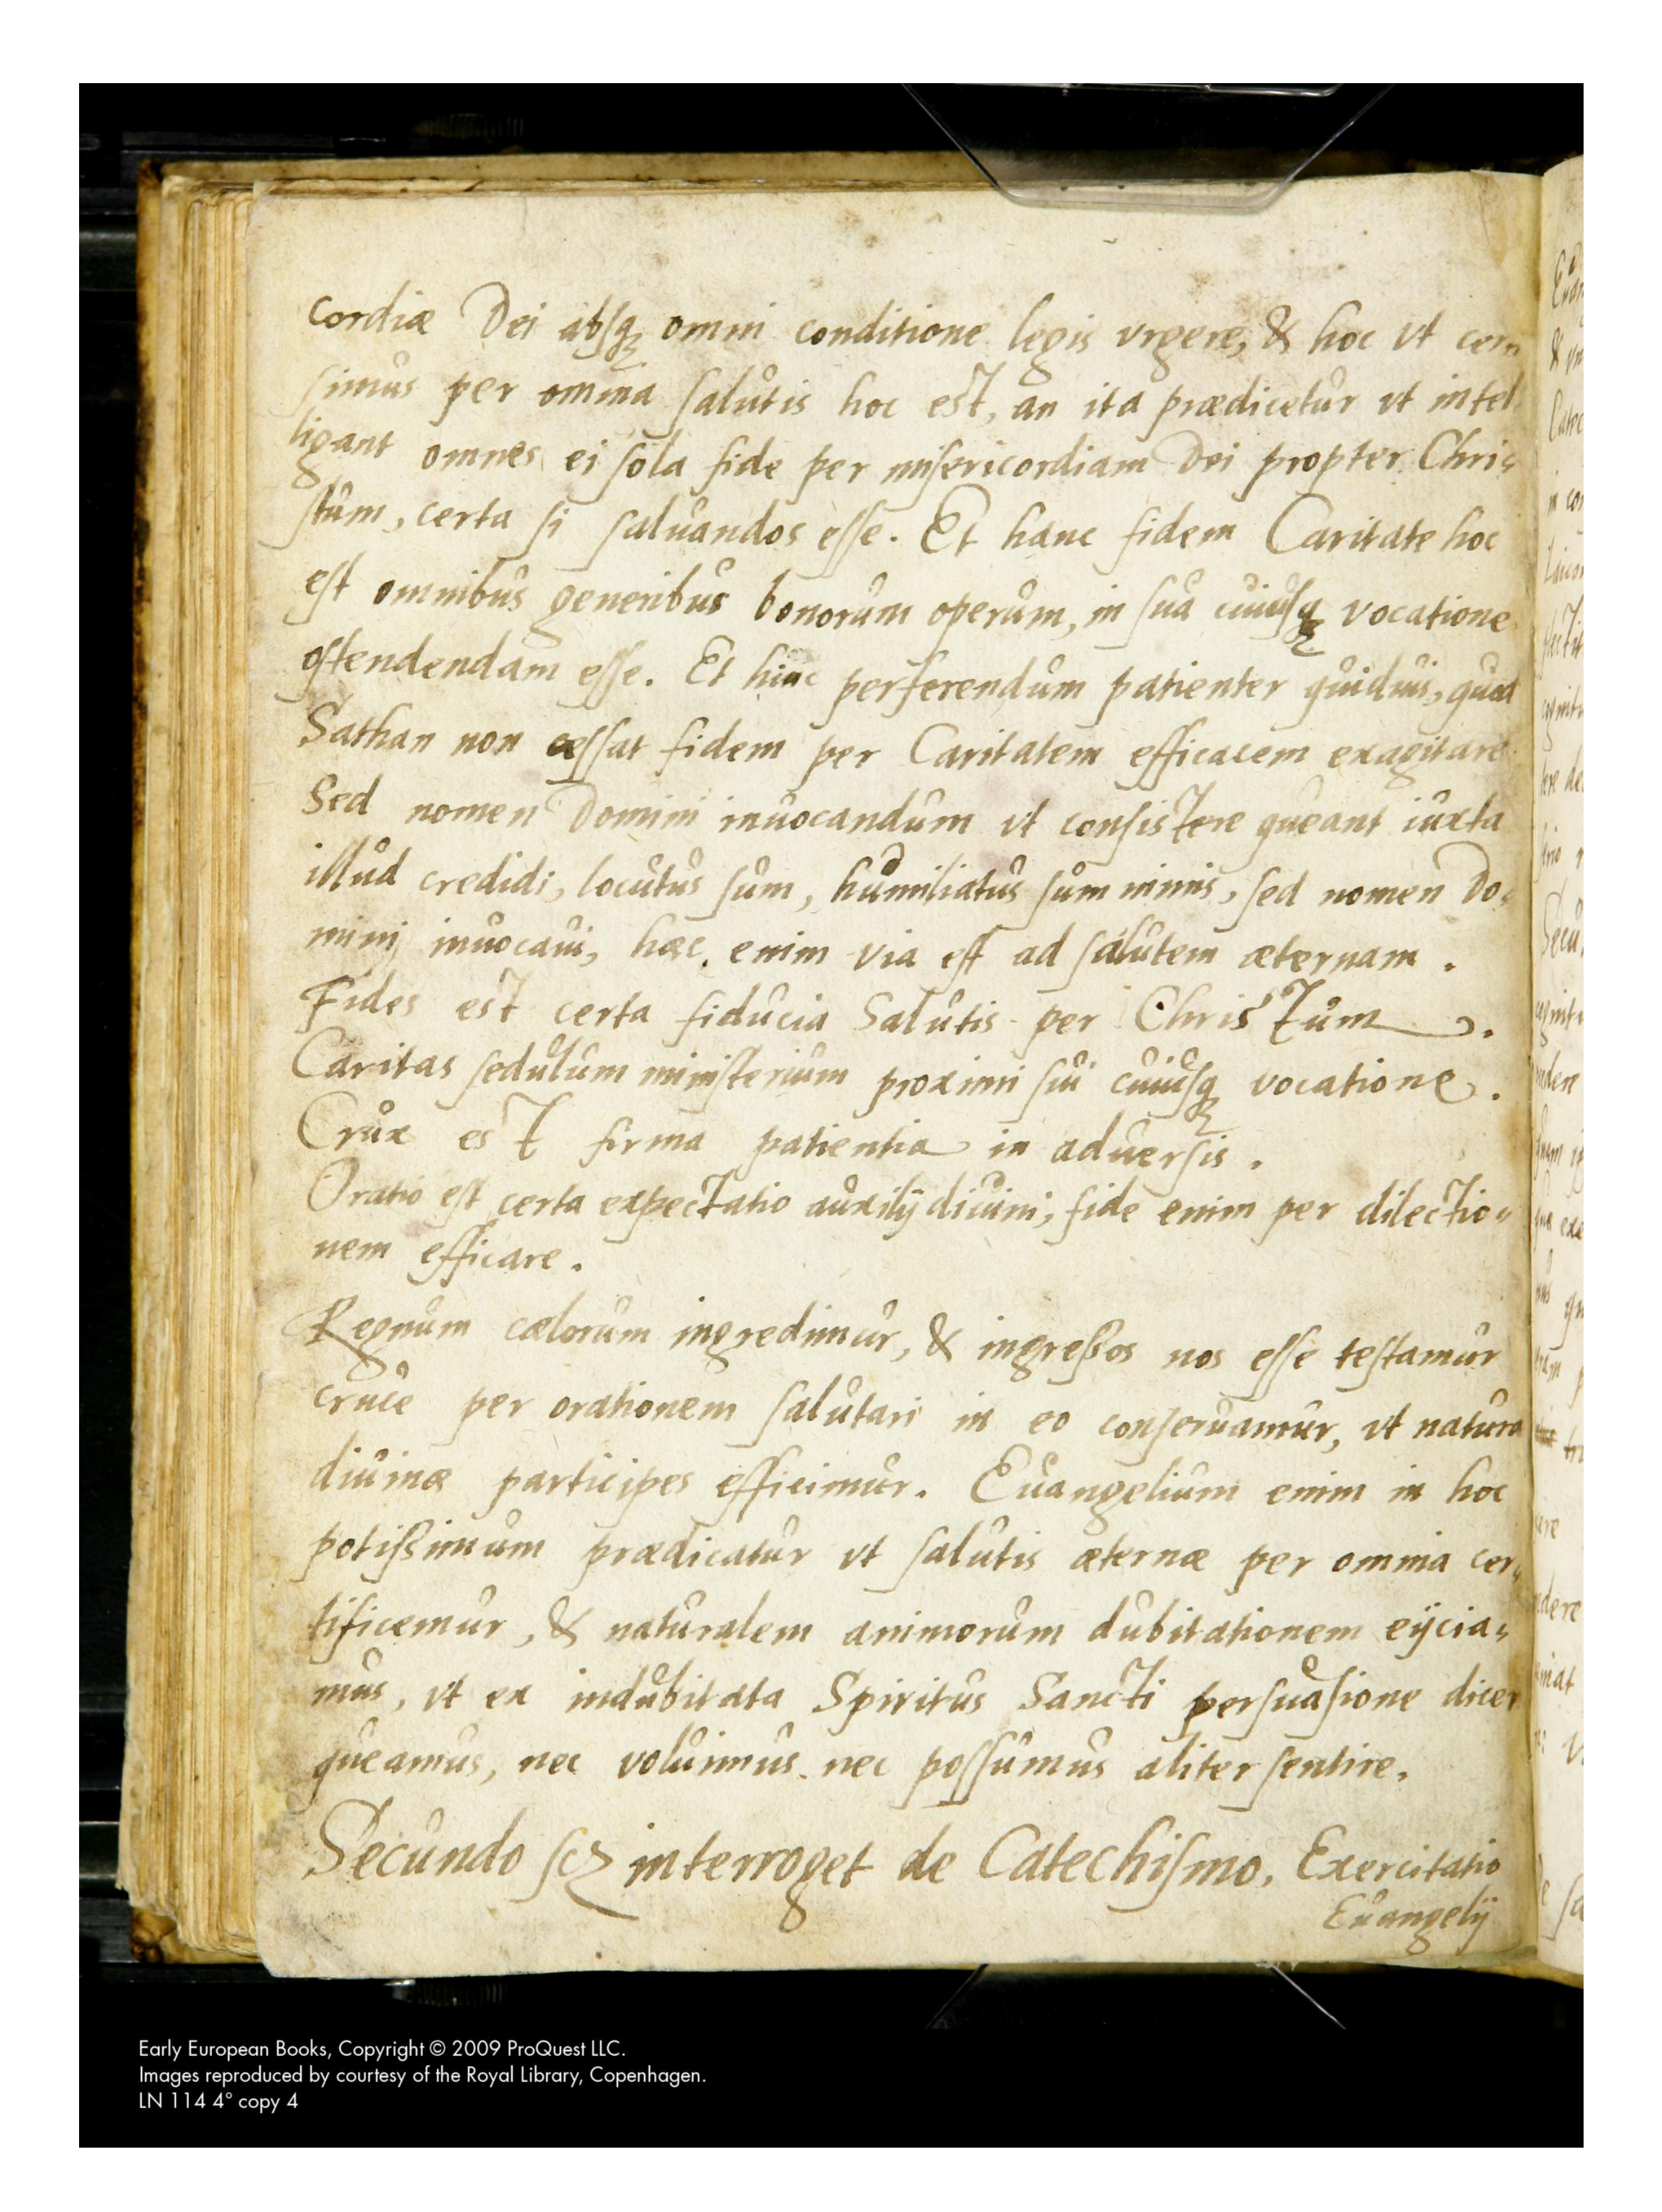 cordiæ Dei absq₃ omni conditione legis vrgere, & hoc vt cer„
simus per omnia salutis hoc est, an ita prædicetur vt intel
ligant omnes ei sola fide per misericordiam Dei propter Chri„
stum, certa si saluandos esse. Et hanc fidem Caritate hoc
est omnibus generibus bonorum operum, in sua cuiusq₃ vocatione
ostendendam esse. Et hinc perferendum patienter quiduis, quod
Sathan non cessat fidem per Caritatem efficacem exagitare
Sed nomen Domini inuocandum vt consistere queant iuxta
illud credidi, locutus sum, humiliatus sum nimis, sed nomen Do„
mini inuocaui, hæc enim via est ad salutem æternam.
Fides est certa fiducia Salutis per Christum.
Caritas sedulum ministerium proximi sui cuiusq₃ vocatione.
Crux est firma patientia in aduersis.
Oratio est certa expectatio auxilij diuini, fide enim per dilectio„
nem efficare.
Regnum cælorum ingredimur, & ingreßos nos esse testamur
cruce per orationem salutari in eo conseruamur, vt natura
diuinæ participes efficimur. Euangelium enim in hoc
potißimum prædicatur vt salutis æternæ per omnia cer„
tificemur, & naturalem animorum dubitationem eijcia„
mus, vt ex indubitata Spiritus Sancti persuasione dicer
queamus, nec voluimus nec possumus aliter sentire.
Secundo scz interroget de Catechismo, Exercitatio
Euangelij
Early European Books, Copyright © 2009 ProQuest LLC.
Images reproduced by courtesy of the Royal Library, Copenhagen.
LN 114 4° copy 4